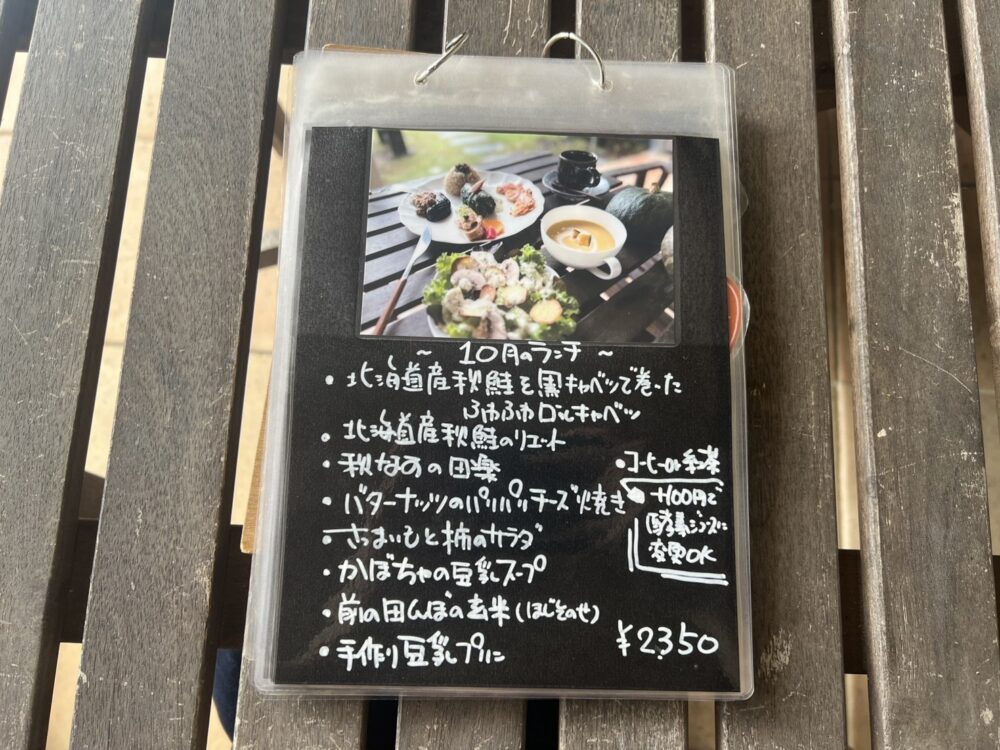 ～ 10月のランチ ～
・北海道産秋鮭を黒キャベツで巻った
ふゆふゆロールキャベツ
・北海道産秋鮭のリエット
・秋なすの田楽
・バターナッツのパリパリチーズ焼き
・さつまいもと柿のサラダ
・かぼちゃの豆乳スープ
・前の田んぼの玄米(ほじそのせ)
・手作り豆乳プリン
・コーヒーor紅茶
+100円で
酵素ジュースに
変更OK
¥2350